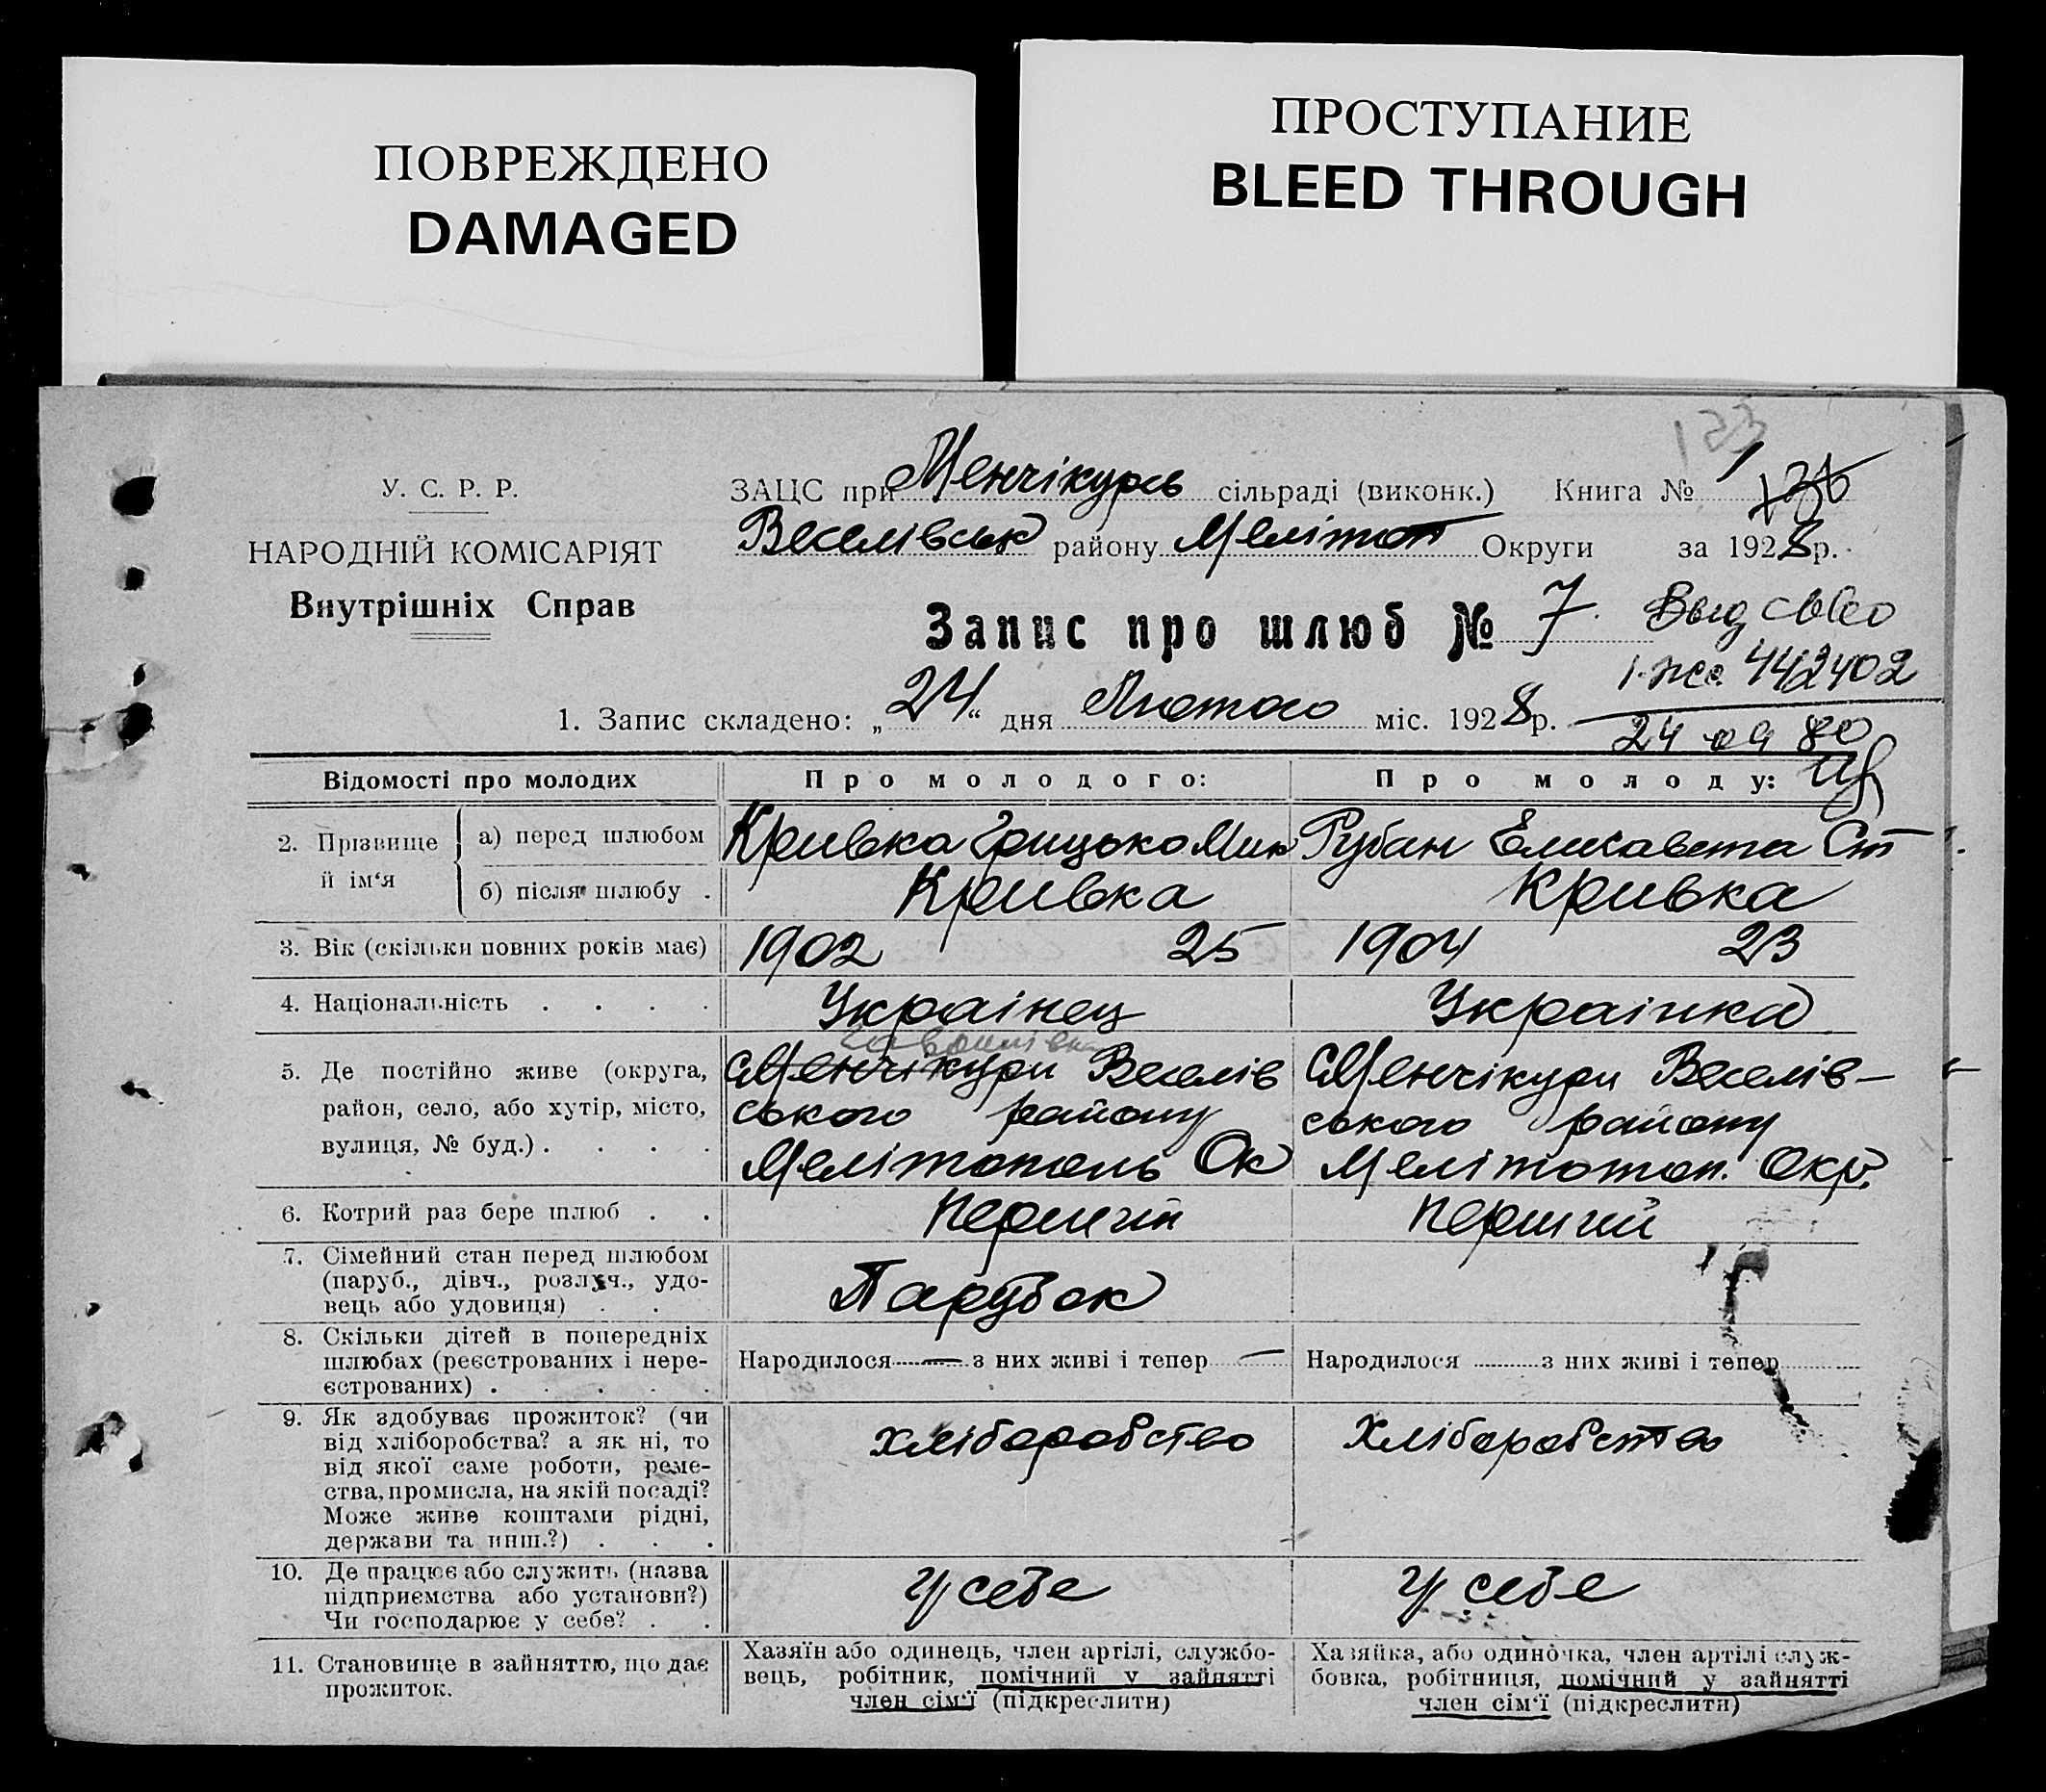 ПОВРЕЖДЕНО
DAMAGED
ПРОСТУПАНИЕ
BLEED THROUGH
123
У. С. Р. Р.
НАРОДНІЙ КОМІСАРІЯТ
Внутрішніх Справ
ЗАЦС при Менчікурів сільраді (виконк.) Книга № 1 126
Веселівськ району Мелітоп Округи за 1928 р.
Запис про шлюб № 7.
Выд свво
1-жс 442402
24 09 80
1. Запис складено: „24“ дня Лютого міс. 1928 р.
Відомості про молодих Про молодого: Про молоду:
2. Прізвище й ім‘я
а) перед шлюбом Кривка Грицько Мик Рубан Елисавета Ст
б) після шлюбу . Кривка Кривка
3. Вік (скільки повних років має) 1902 25 1904 23
4. Національність . . . . Українец Українка
5. Де постійно живе (округа, район, село, або хутір, місто, вулиця, № буд.) . . . .
С Менчікури Веселів
ського району
Мелітополь Ок
С Менчікури Веселів-
ського району
Мелітопол. Окр.
6. Котрий раз бере шлюб . . Перший Перший
7. Сімейний стан перед шлюбом
(паруб., дівч., розлуч., удо-
вець або удовиця) . . Парубок
8. Скільки дітей в попередніх
шлюбах (реєстрованих і нере-
єстрованих) . . . . .
Народилося — з них живі і тепер —
Народилося з них живі і тепер
9. Як здобуває прожиток? (чи
від хліборобства? а як ні, то
від якої саме роботи, реме-
ства, промисла, на якій посаді?
Може живе коштами рідні,
держави та инш.?) . . .
хліборобство Хліборобство
10. Де працює або служить (назва
підприємства або установи?)
Чи господарює у себе? . .
У себе У себе
11. Становище в зайняттю, що дає
прожиток.
Хазяїн або одинець, член артілі, службо-
вець, робітник, помічний у зайнятті
член сім‘ї (підкреслити)
Хазяйка, або одиночка, член артілі служ-
бовка, робітниця, помічний у зайнятті
член сім‘ї (підкреслити)